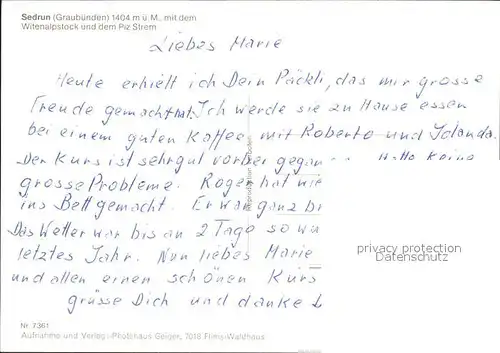 Sedrun (Graubünden) 1404 m ü. M., mit dem
Witenalpstock und dem Piz Strem
Liebes Marie
Heute erhielt ich Dein Päckli, das mir grosse
Freude gemacht hat. Ich werde sie zu Hause essen
bei einem guten Kaffee mit Roberto und Jolanda.
Der Kurs ist sehr gut vorbei gegan hatte keine
grosse Probleme. Roger hat nie
ins Bett gemacht. Er war ganz
Das Wetter war bis an 2 Tage so wu
letztes Jahr. Nun liebes Marie
und allen einen schönen Kurs
grüsse Dich und danke
privacy protection
Datenschutz
Nr. 7361
Aufnahme und Verlag: Photohaus Geiger, 7018 Flims-Waldhaus